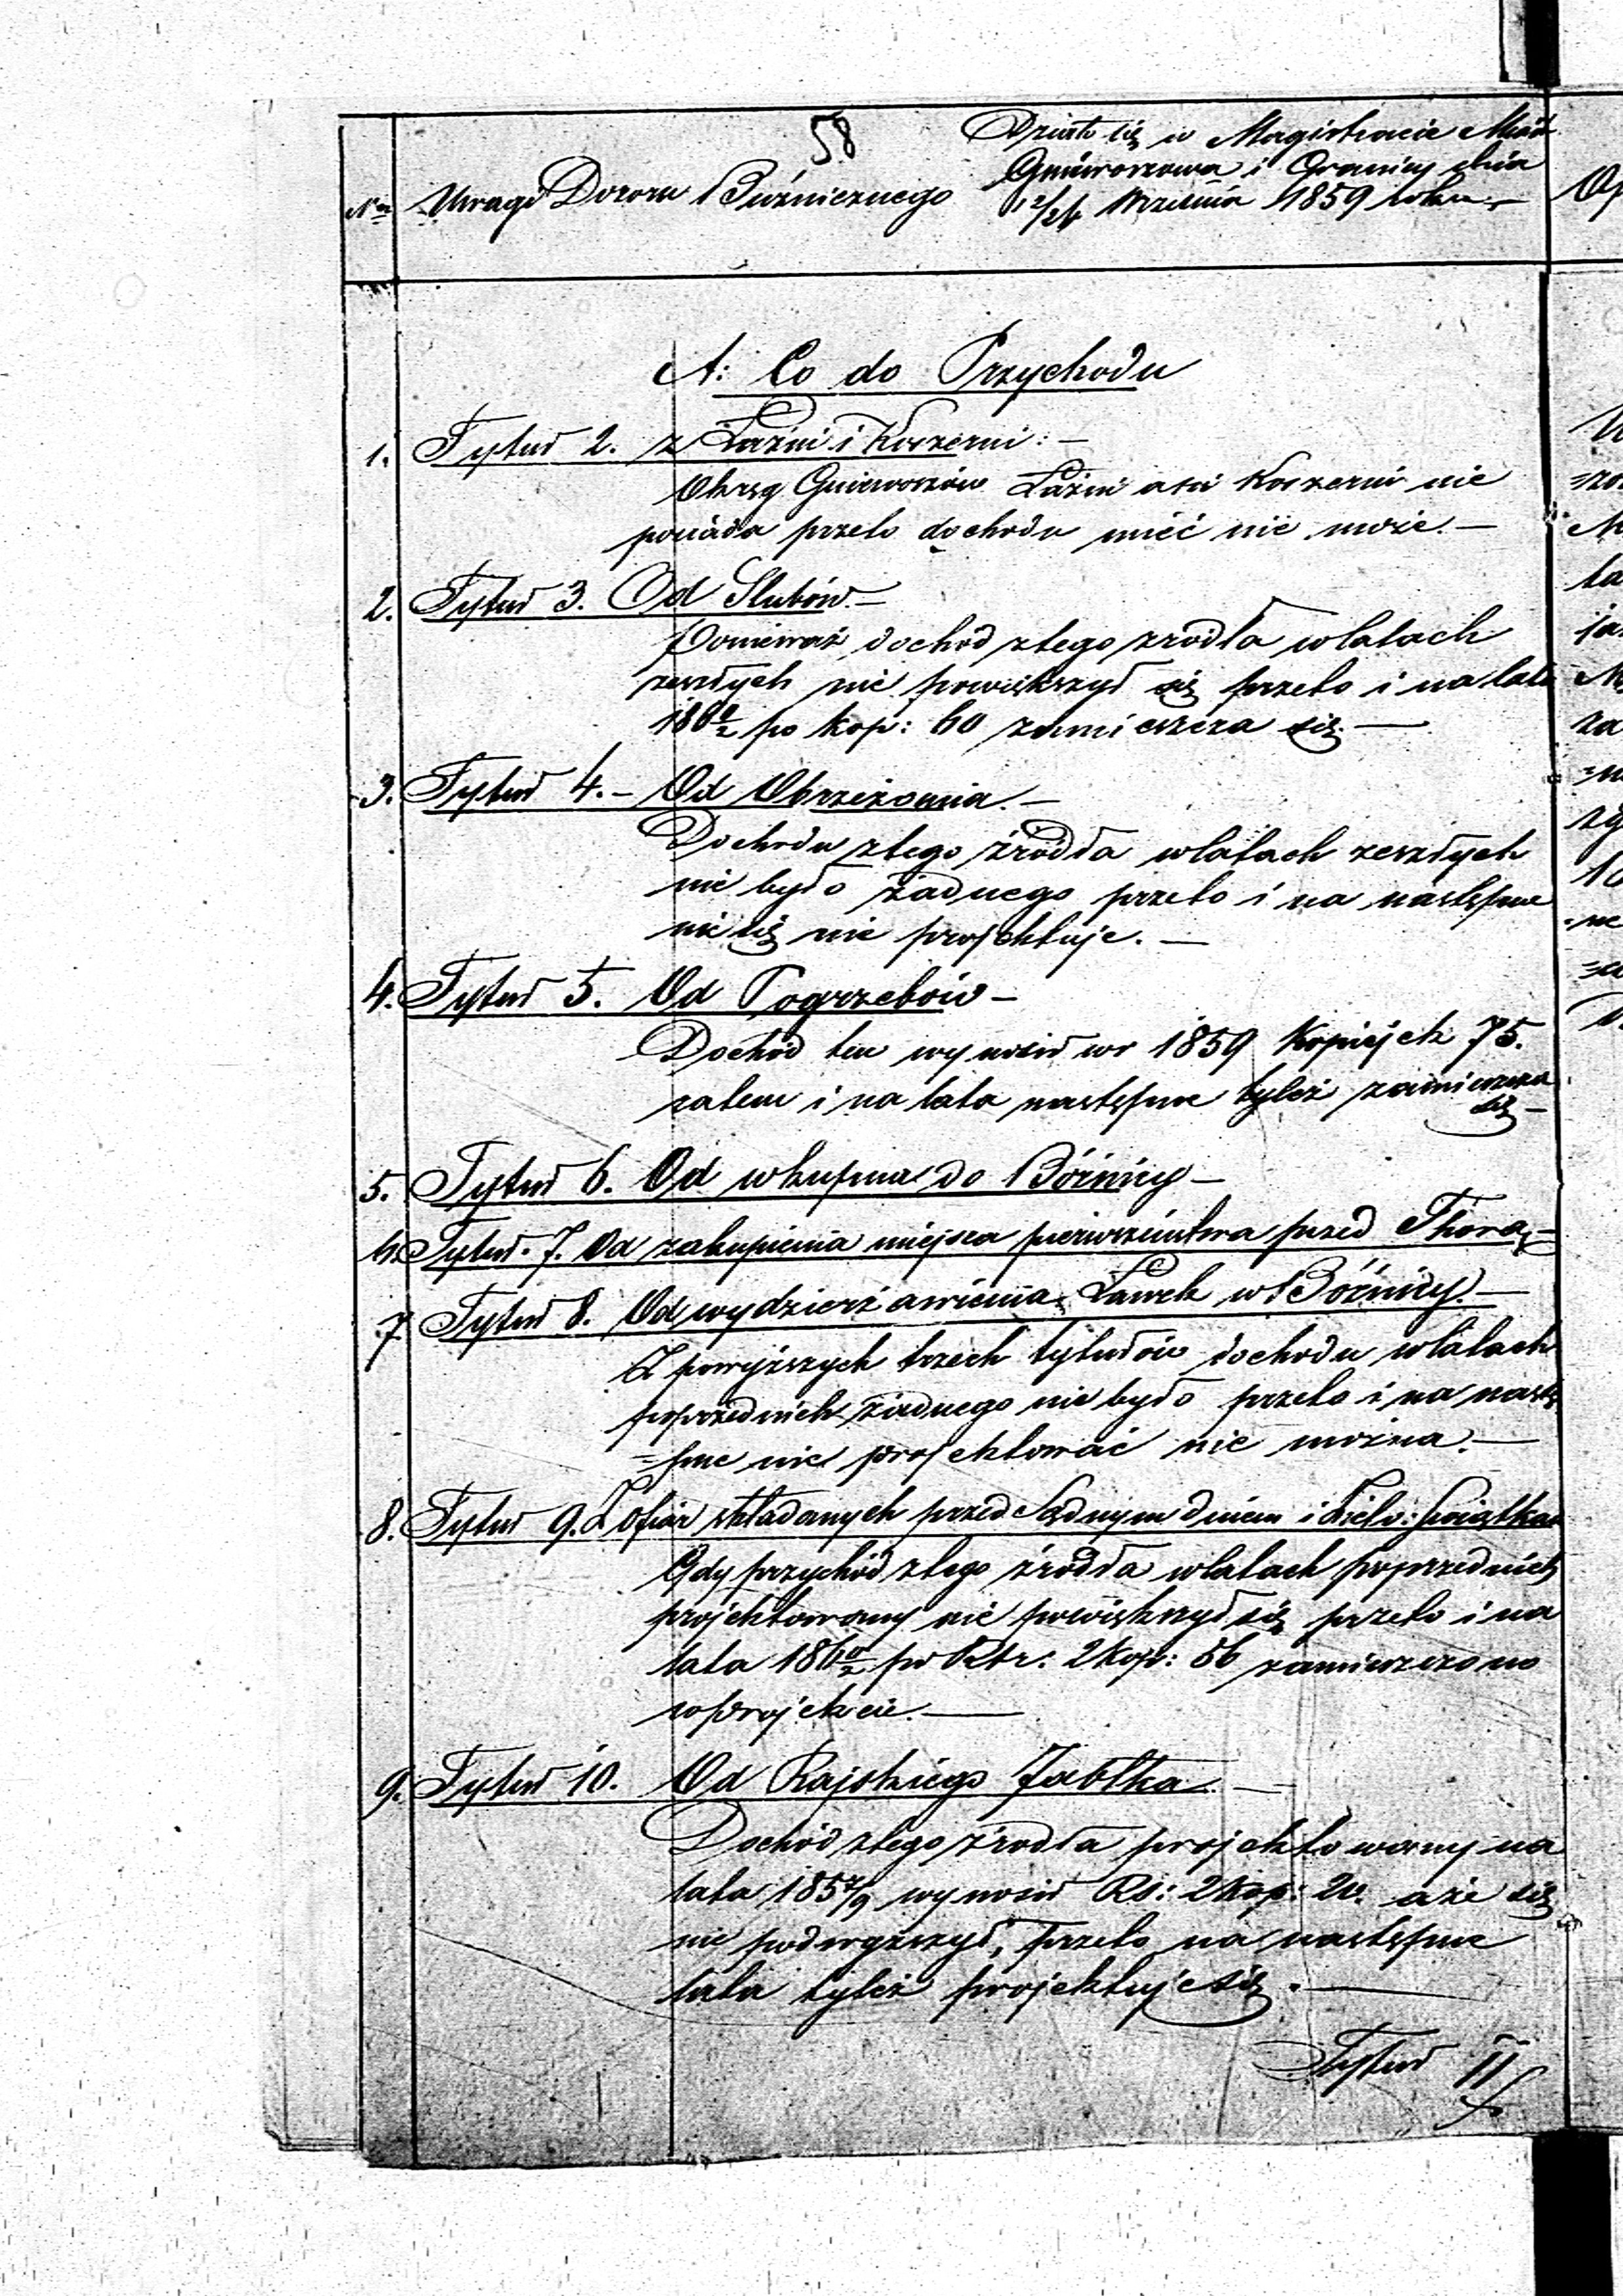 58
Działo się w Magistracie Miast
Gniewoszowa i Granicy dnia
12/24 Września 1859 roku
Nr Uwagi Dozoru Bużnicznego
A: Co do Przychodu
1. Tytuł 2. z Łaźni i Koszerni: —
Okręg Gniewoszów Łaźni ani Koszerni nie
posiada przeto dochodu mieć nie może. —
2. Tytuł 3. Od Slubów. —
Ponieważ dochód z tego zrodła w latach
zeszłych nie powiększył się przeto i na lata
1860/2 po kop: 60 zamieszcza się. —
3. Tytuł 4. — Od Obrzezania. —
Dochodu z tego źródła w latach zeszłych
nie było żadnego przeto i na następne
nic się nie projektuje. —
4. Tytuł 5. Od Pogrzebów —
Dochód ten wynosił w r 1859 Kopiejek 75.
zatem i na lata następne tyleż zamieszcza
się —
5. Tytuł 6. Od wkupna do Bóżnicy —
6. Tytuł 7. Od zakupienia miejsca pierwszeństwa przed Thorą —
7. Tytuł 8. Od wydzierżawienia Ławek w Bóżnicy. —
Z powyższych trzech tytułów dochodu w latach
poprzednich żadnego nie było przeto i na nastę
=pne nic projektować nie można. —
8. Tytuł 9. Z Ofiar składanych przed Sądnym dniem i Ziel: Swiątkam
Gdy przychód z tego źrodła w latach poprzednich
projektowany nie powiększył się przeto i na
lata 1860/2 po Rbr: 2 kop: 56 zamieszczono
w projekcie. —
9. Tytuł 10. Od Rajskiego Jabłka. —
Dochód z tego źrodła projektowany na
lata 1857/9 wynosił Rs: 2 kop: 20. a że się
nie podwyższył, przeto na następne
lata tyleż projektuje się. —
Tytuł 11